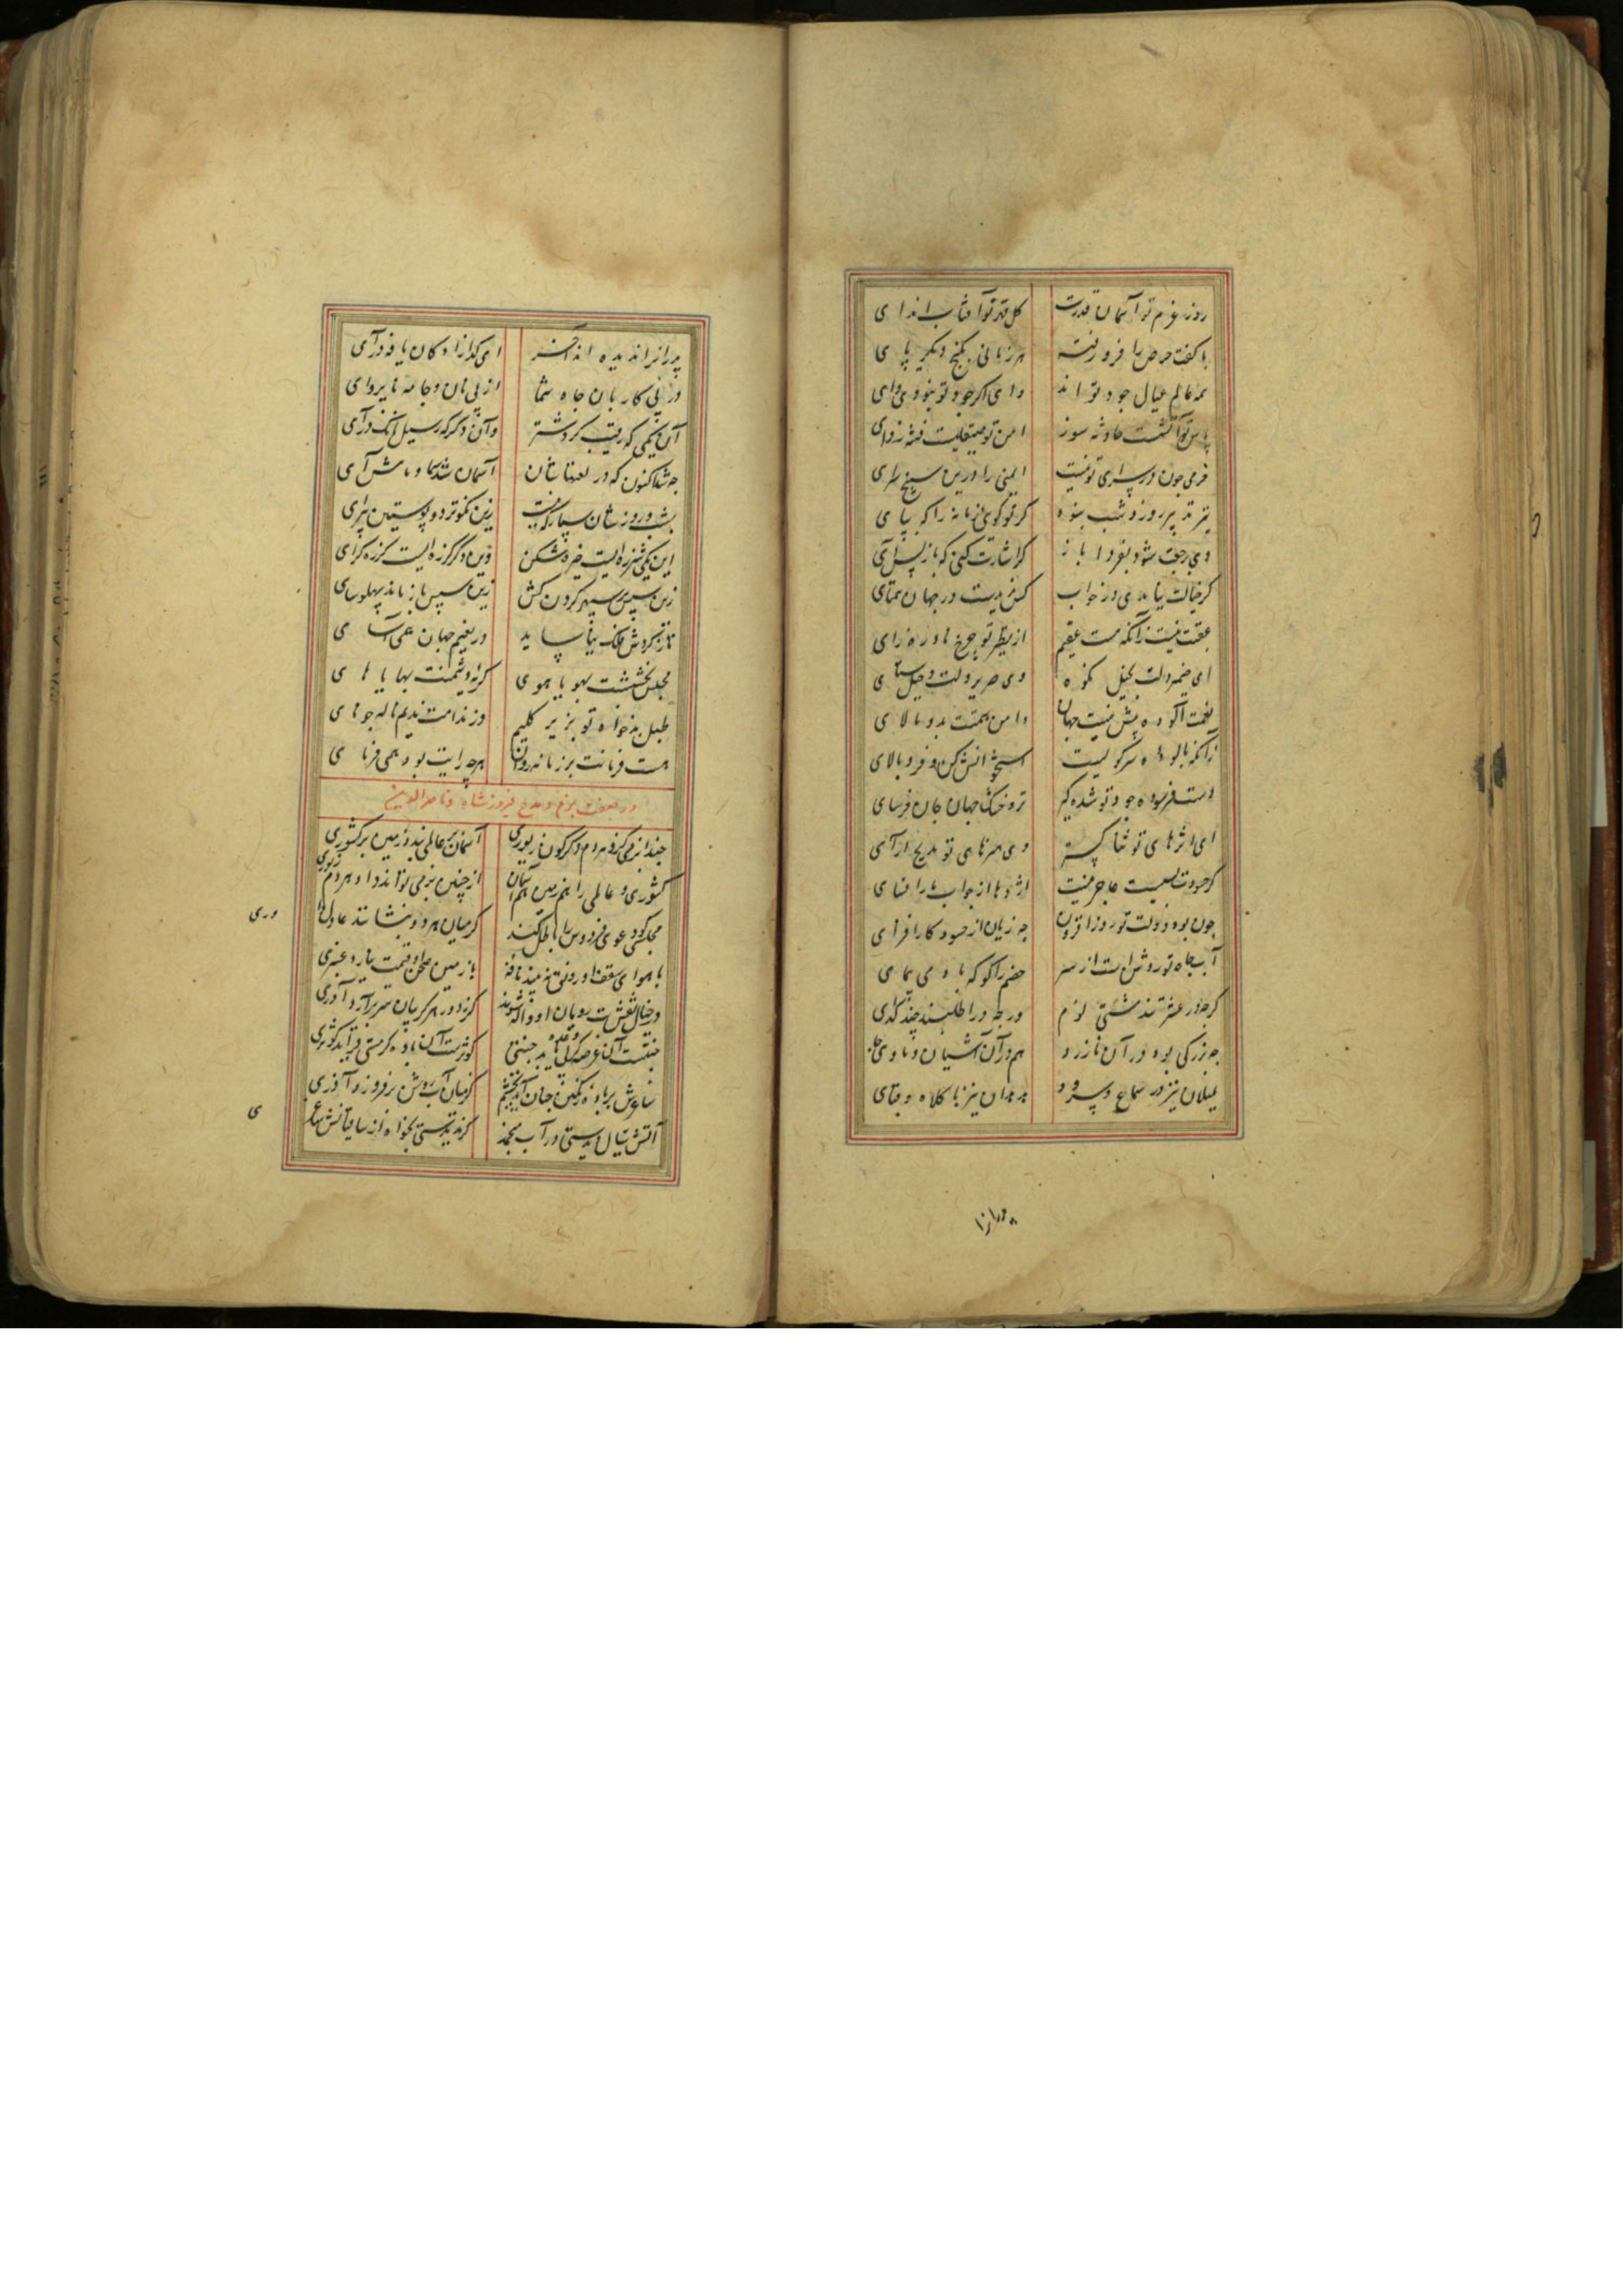 روز عزم تو آسمان قدرت کل قدر تو آفتاب اندای
با کفت حرص را فرو رفته هر زمانی بکنج دیگر پای
همه عالم عیال جود تو اند وای اگر جود تو نبودی وای
پاس تو آتشیست حادثه سوز امن تو صیقلیست فتنه زدای
خرمی جون در سرای تو نیست ایمنی را درین سپنج سرای
نپرند پر روز و شب بنوه گر تو گویی زمانه را که بپای
دی برجعت شود بفردا باز گر اشارت کنی که باز پس آی
گر خیالت نیامدی در خواب کس ندیدیت در جهان همتای
عقبت نیست زانکه هست عقیم از نظیر تو چرخ نادره زای
ای ضمیر ولت بخیل نکوه وی صریر ولت دخیل ستای
نعمت آلوده بیش نیست جهان دامن همتت بدو مالای
زانکه بالوده سر کویست استخوانش کن و فرو بالای
دست فرسوده جود تو شده گیر تر و خشک جهان جان فرسای
ای اثرهای تو ثنا گستر وی هنرهای تو مدیح آرای
گر حسودت بسیست عاجز نیست اژدها از جواب مارافسای
جون بود دولت تو روز افزون چه زیان از حسود کار افزای
آب جاه تو روشن است از سر خصم را گو که باد می پیمای
گرچه در عشرتند مشتی لوم ور چه در اطلسند چند گدای
چه بزرگی بود در آن نازرد هم در آن آشیان و ماوی جای
بلبلان نیز در سماع و سرود هدهدان نیز با کلاه و قبای
پدرانرا
پدرانرا ندیده اند آخر ای گدازادگان یافه درآی
در پی کاروان جاه شما از پی نان و جامه ناپروای
آن یکی که رقیب کرد شتر وان دگر که رسیل بانگ درآی
چه شد اکنون که در لغتهاتان آسمان شد سما و ماش آی
شب و روزتان سپارکهیست زین نکوتر دو پوستین پیرای
این یکی شرزه ایست خیره شکن وین دگر گرزه ایست گرزه گرای
زین سپس بر سپهر گردن کش زین سپس با زمانه پهلوسای
تا ز گردش فلک نیاساید در نعیم جهان همی آسای
مجلس بخششت بهویاهوی گریه دشمنت بهایاهای
طبل بدخواه تو بزیر گلیم وز ندامت ندیم ناله چو نای
هست فرمانت بر زمانه روان هرچه رایت بود همی فرمای
در صفت بزم و مدح فیروزشاه و ناصرالدین
حبذا بزمی کزو هر دم دگرگون زیوری آسمان بر عالمی بندد زمین بر کشوری
کشوری و عالمی را هم زمین هم آسمان از چنین بزمی تواند داد هر دم زیوری
مجلسی کو دعوی فردوس را باطل کند گر میان هر دو بنشانند عادل داوری
وری
با هوای سقف او رونق نبیند نافه با زمین صحن او قیمت نیارد عنبری
در خیال نقش بت رویان او واله شوند گر در هر گریبان سر برآرد آذری
جنتست آن عرصه کر بی وعده یابد جنتی کوثرست آن باده گر مستی فزاید کوثری
ساغرش پر باده رنگین چنان آید بچشم کز میان آب روشن برفروزد آذری
آتش سیال دیدستی در آب منجمد گر ندیدستی بخواه از ساقیانش ساغر
ی